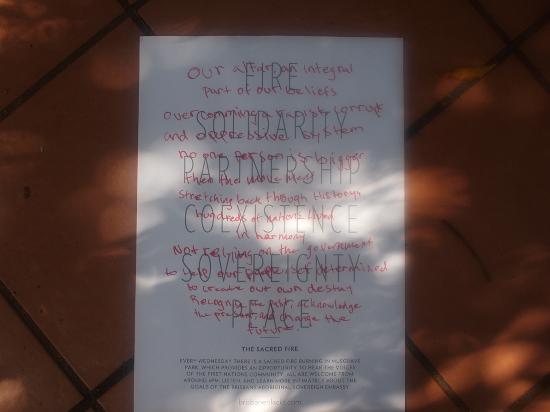 FIRE
our altar, an integral
part of our beliefs
SOLIDARITY
overcoming a racist corrupt
and oppressive system
PARTNERSHIP
no one person is bigger
then the movement
COEXISTENCE
stretching back through history
hundreds of nations lived
in harmony
SOVEREIGNTY
Not relying on the government
to help our people determined
to create our own destny
PEACE
Recognise the past, acknowledge
the present, and change the
future
THE SACRED FIRE
EVERY WEDNESDAY THERE IS A SACRED FIRE BURNING IN MUSGRAVE
PARK, WHICH PROVIDES AN OPPORTUNITY TO HEAR THE VOICES
OF THE FIRST NATIONS COMMUNITY. ALL ARE WELCOME FROM
AROUND 6PM. LISTEN, AND LEARN MORE INTIMATELY ABOUT THE
GOALS OF THE BRISBANE ABORIGINAL SOVEREIGN EMBASSY